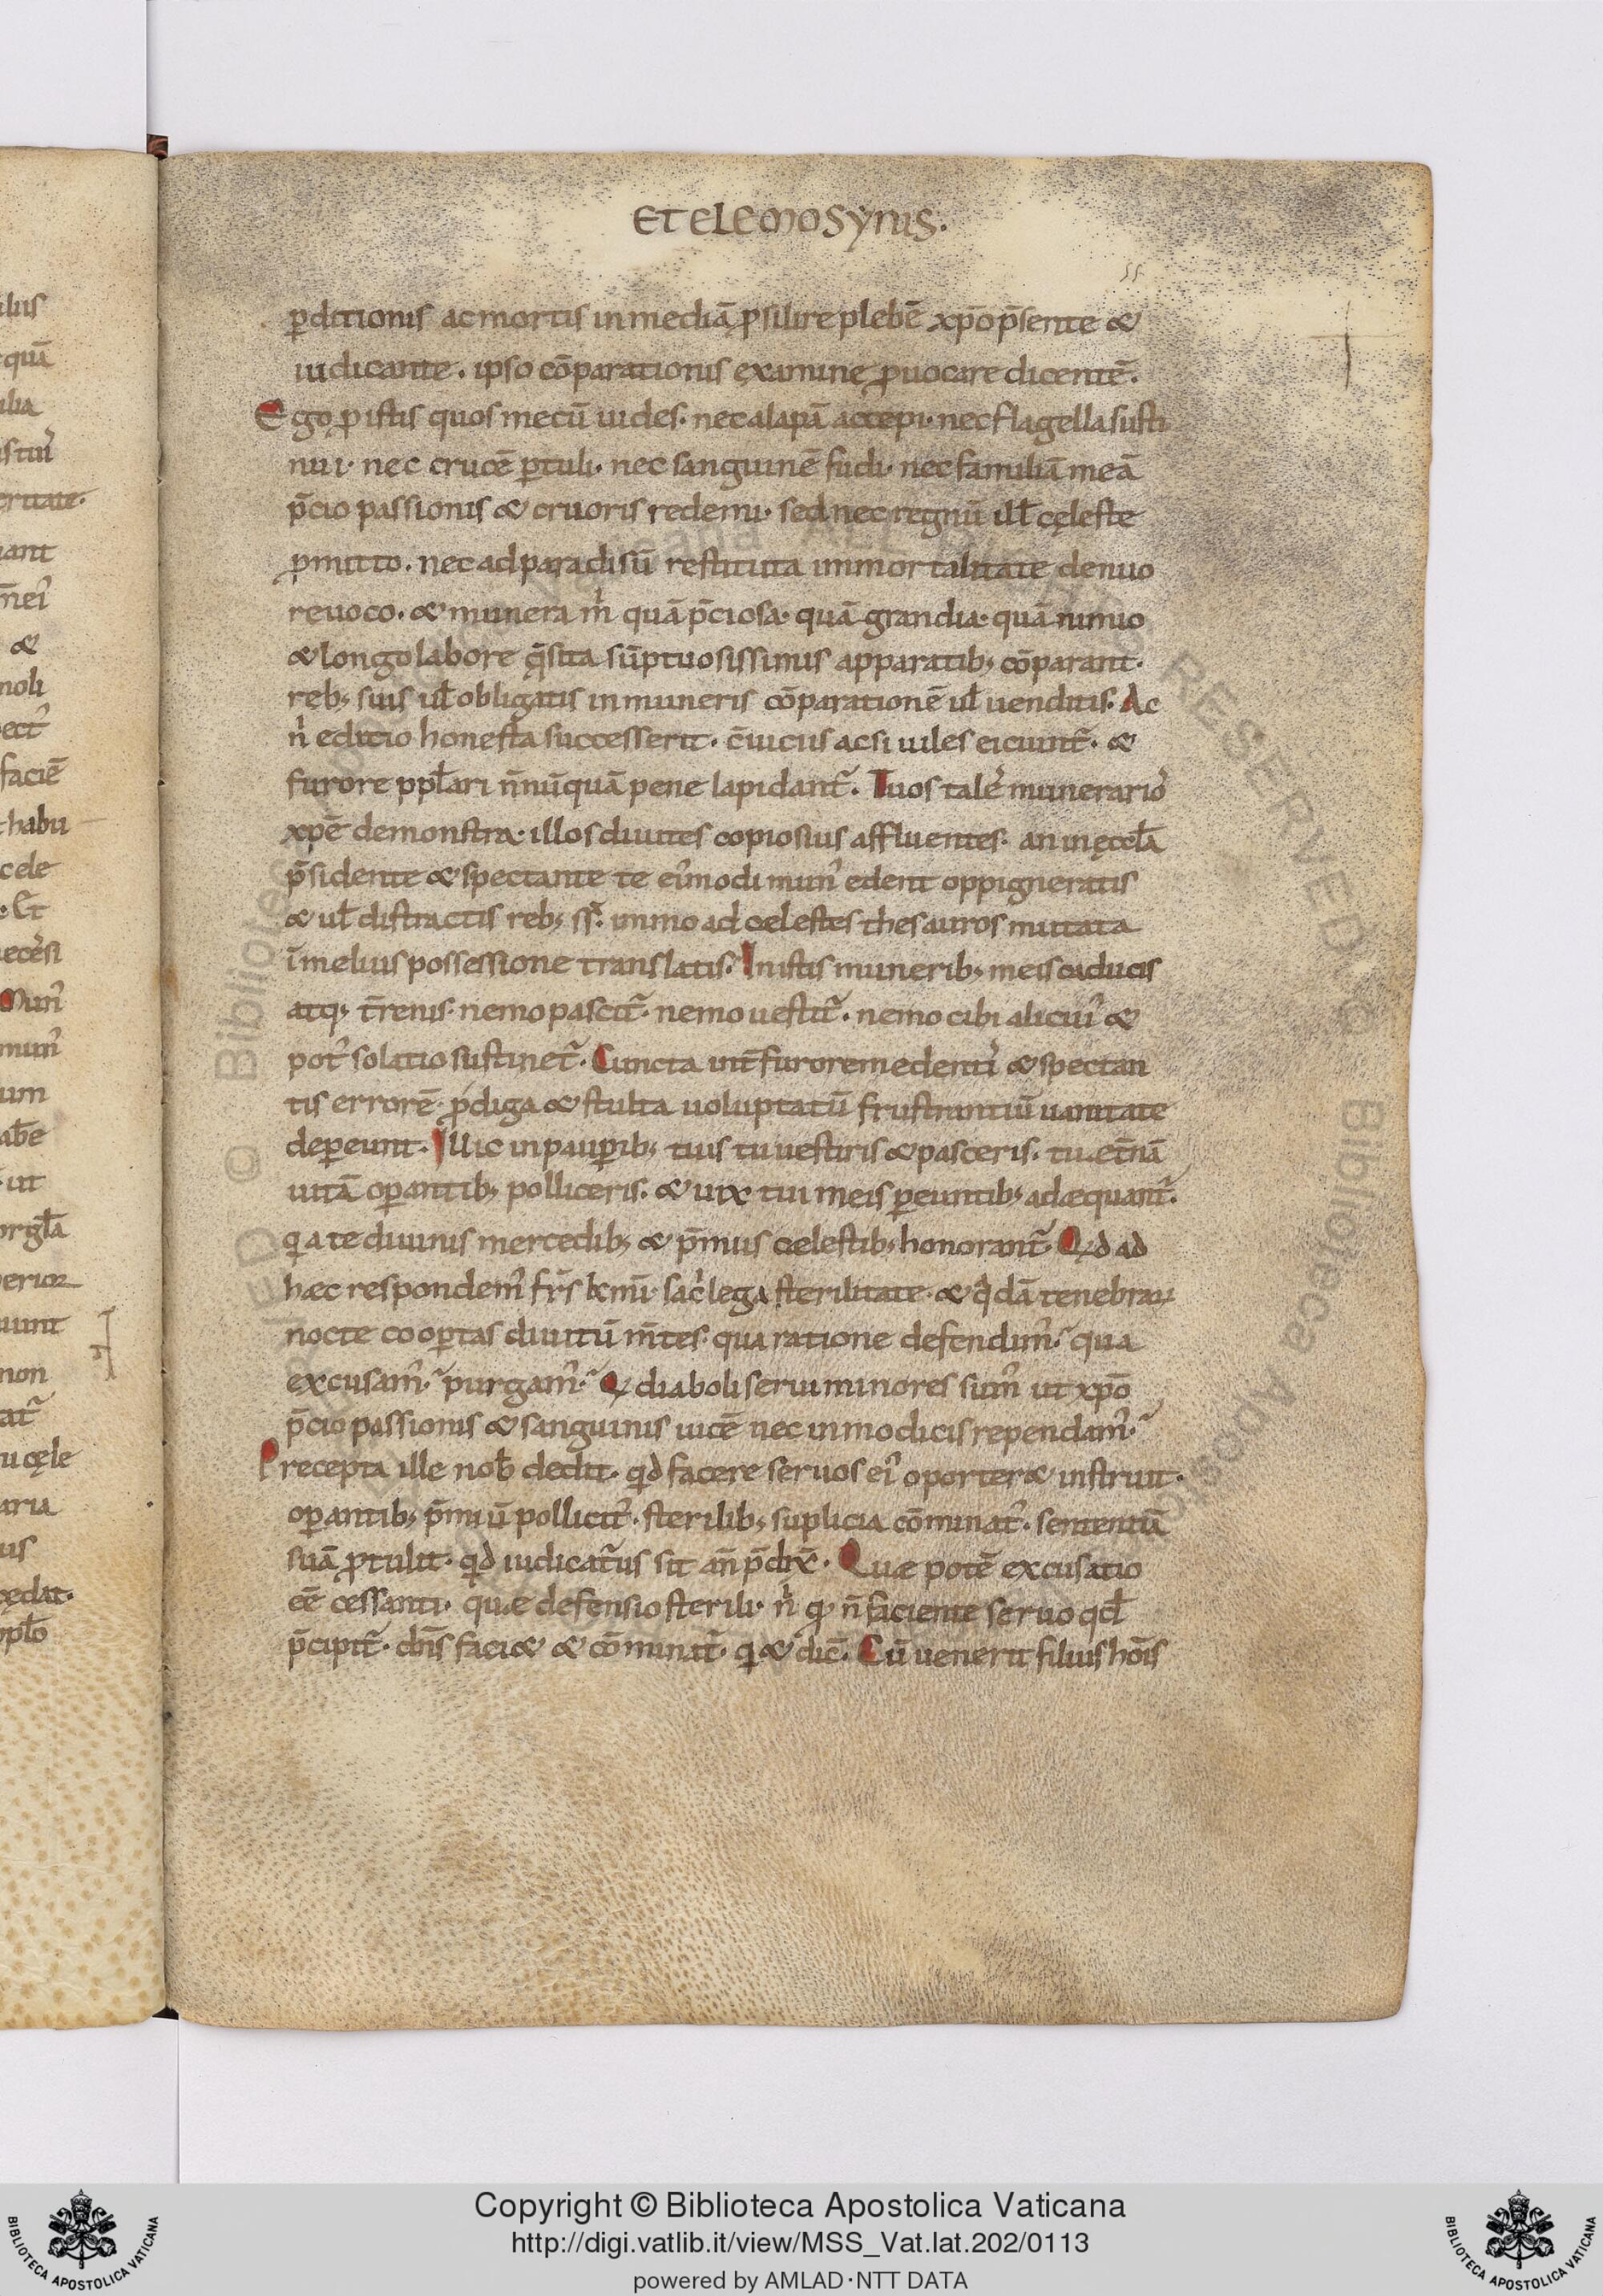 ET ELEMOSYNIS.
ꝑditionis ac mortis in mediā ꝓsilire plebē xp̄o p̄sente &
iudicante. ipso cōparationis examine ꝓuocare dicentē.
Ego ꝓ istis quos mecū uides. nec alapā accepi. nec flagella susti
nui. nec crucē ꝑtuli. nec sanguinē fudi. nec familiā meā
p̄cio passionis & cruoris redemi. sed nec regnū ill̄ cęleste
ꝓmitto. nec ad paradisū restituta immortalitate denuo
reuoco. & munera m̄ quā p̄ciosa. quā grandia. quā nimio
& longo labore q̄sita sūptuosissimis apparatib; cōparant.
reb; suis ul̄ obligatis in muneris cōparationē ul̄ uenditis. Ac
n̄ editio honesta successerit. c̄uiciis ac si uiles eiciunt̄. &
furore ppl̄ari n̄nūquā pene lapidant̄. Tuos tales munerarios
xp̄e demonstra. illos diuites copiosius affluentes. an in ęccl̄a
p̄sidente & spectante te ei᷒modi mun᷒ edent oppigneratis
& ul̄ distractis reb; ss̄. immo ad celestes thesauros mutata
ī melius possessione translatis. In istis munerib; meis caducis
atq; t̄renis. nemo pascit̄. nemo uestit̄. nemo cibi alicui᷒ &
pot᷒ solatio sustinet̄. Cuncta int̄ furorem edentis & spectan
tis errorē. ꝓdiga & stulta uoluptatū frustrantiū uanitate
deꝑeunt. Illic in pauꝑib; tuis tu uestiris & pasceris. tu et̄nā
uitā oꝑantib; polliceris. & uix tui meis ꝑeuntib; adæquant̄.
qi a te diuinis mercedib; & p̄miis cælestib; honorant̄. Qd ad
hæc respondem᷒ fr̄s kmi. sac̄lega sterilitate. & q̄dā tenebraꝝ
nocte cooꝑtas diuitū m̄tes. qua ratione defendim᷒. qua
excusam᷒. purgam᷒. Q diaboli serui minores sum᷒ ut xp̄o
p̄cio passionis & sanguinis uicē nec in modicis rependam᷒.
Precepta ille nob̄ dedit. qd facere seruos ei᷒ oporter& instruit.
oꝑantib; p̄miū pollicit᷒. sterilib; suplicia cōminat᷒. sententiā
suā ꝓtulit. qd iudicat̄us sit an̄ p̄dix̄. Quæ potē excusatio
eē cessanti. quæ defensio sterili. n̄ qi n̄ faciente seruo qd̄
p̄cipit̄. dn̄s faci& & cōminat̄. qi & dic̄. Cū uenerit filius hōis
Copyright © Biblioteca Apostolica Vaticana
http://digi.vatlib.it/view/MSS_Vat.lat.202/0113
powered by AMLAD·NTT DATA